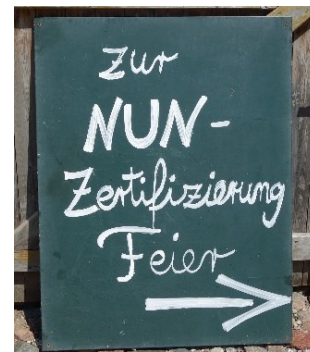 Zur
NUN-
Zertifizierung
Feier